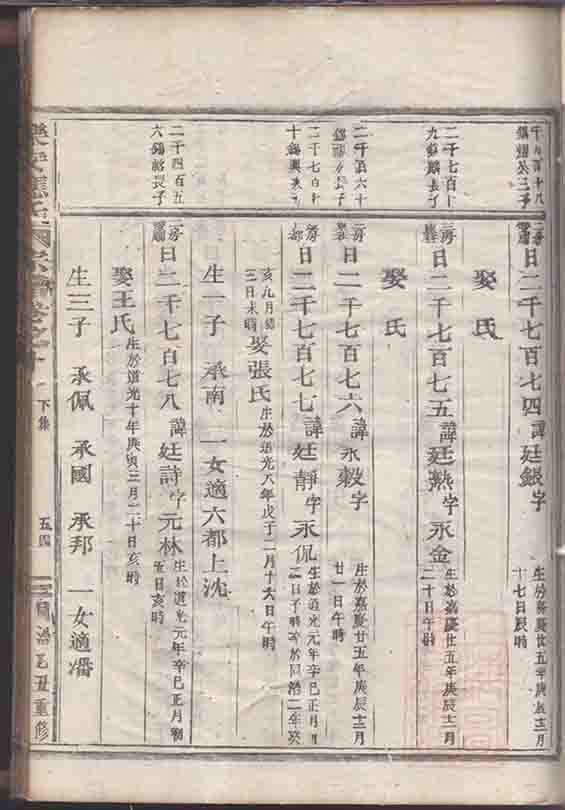 日二千七百七四諱廷銀字
十七日辰時
娶 氏
二千七百十
日二千七百七五諱廷熟字永金
生於嘉慶廿五年庚辰十二月
二十日午時
娶 氏
日二千七百七六諱永毅字
生於嘉慶廿五年庚辰十二月
廿一日午時
二千七百十
日二千七百七七諱廷靜字永侃
生於道光元年辛巳正月
三日子時卒於同治二年癸
亥九月
三日未時
娶張氏
生於道光八年戊子二月十六日午時
生一子 承南 一女適六都上沈
二千四百五
六錫裕長子
日二千七百七八諱廷詩字元林
生於道光元年辛巳正月初
五日亥時
娶王氏
生於道光十年庚寅三月二十日亥時
生三子 承佩 承國 承邦 一女適潘
下集
五四
乙丑重修